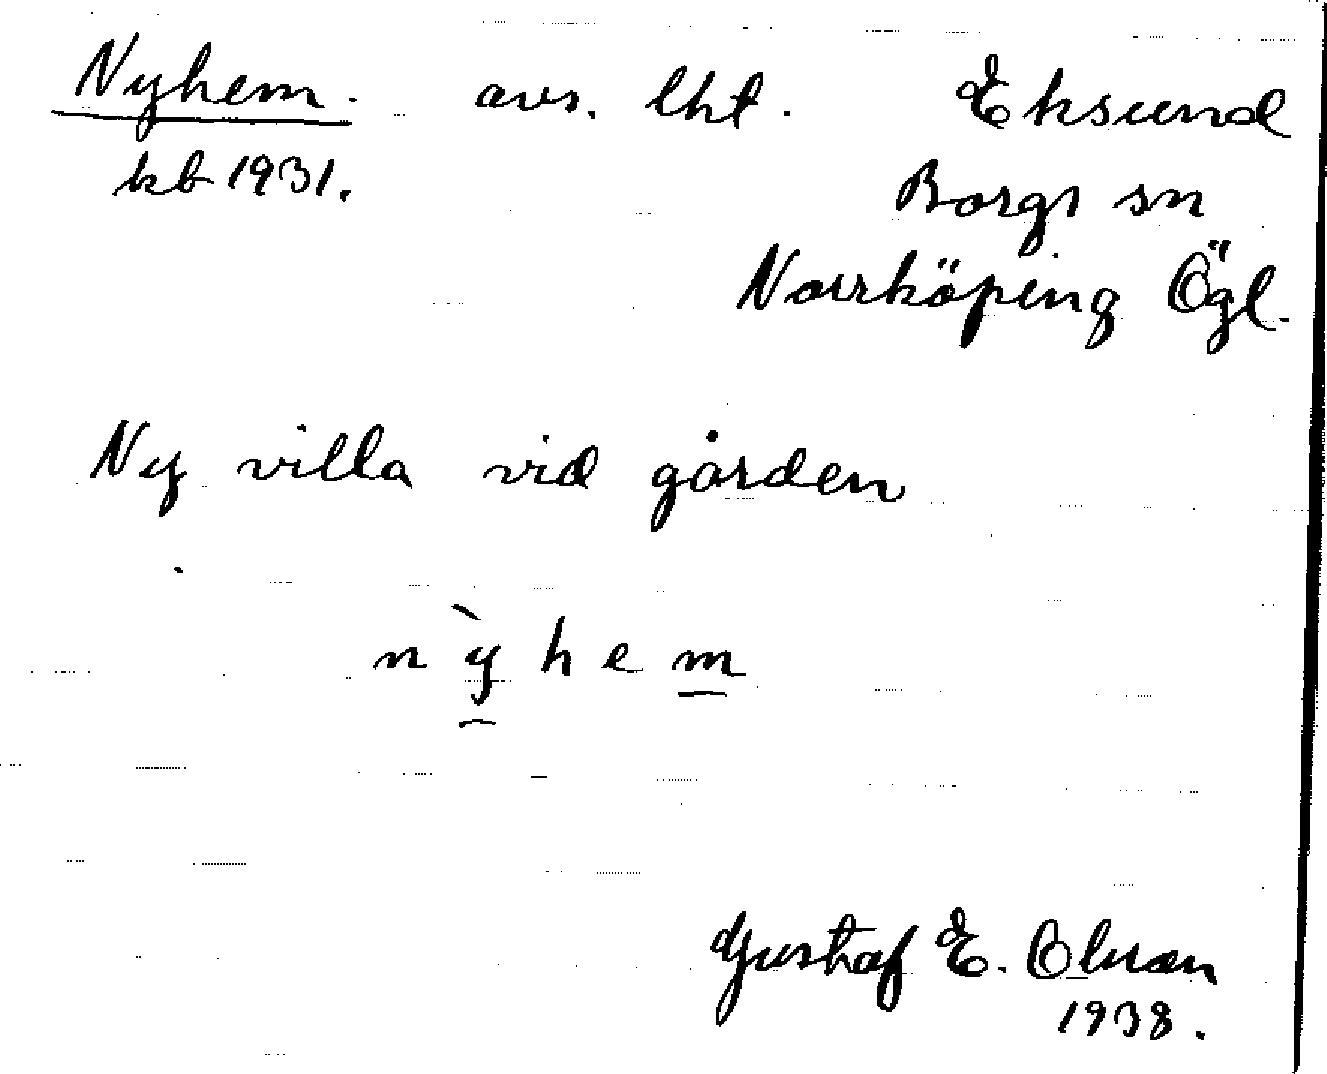 Nyhem. avs. lht. Eksund
kb 1931. Borgs sn
Norrköping Ögl.
Ny villa vid gården
nỳhem
Gustaf E. Olsson
1938.